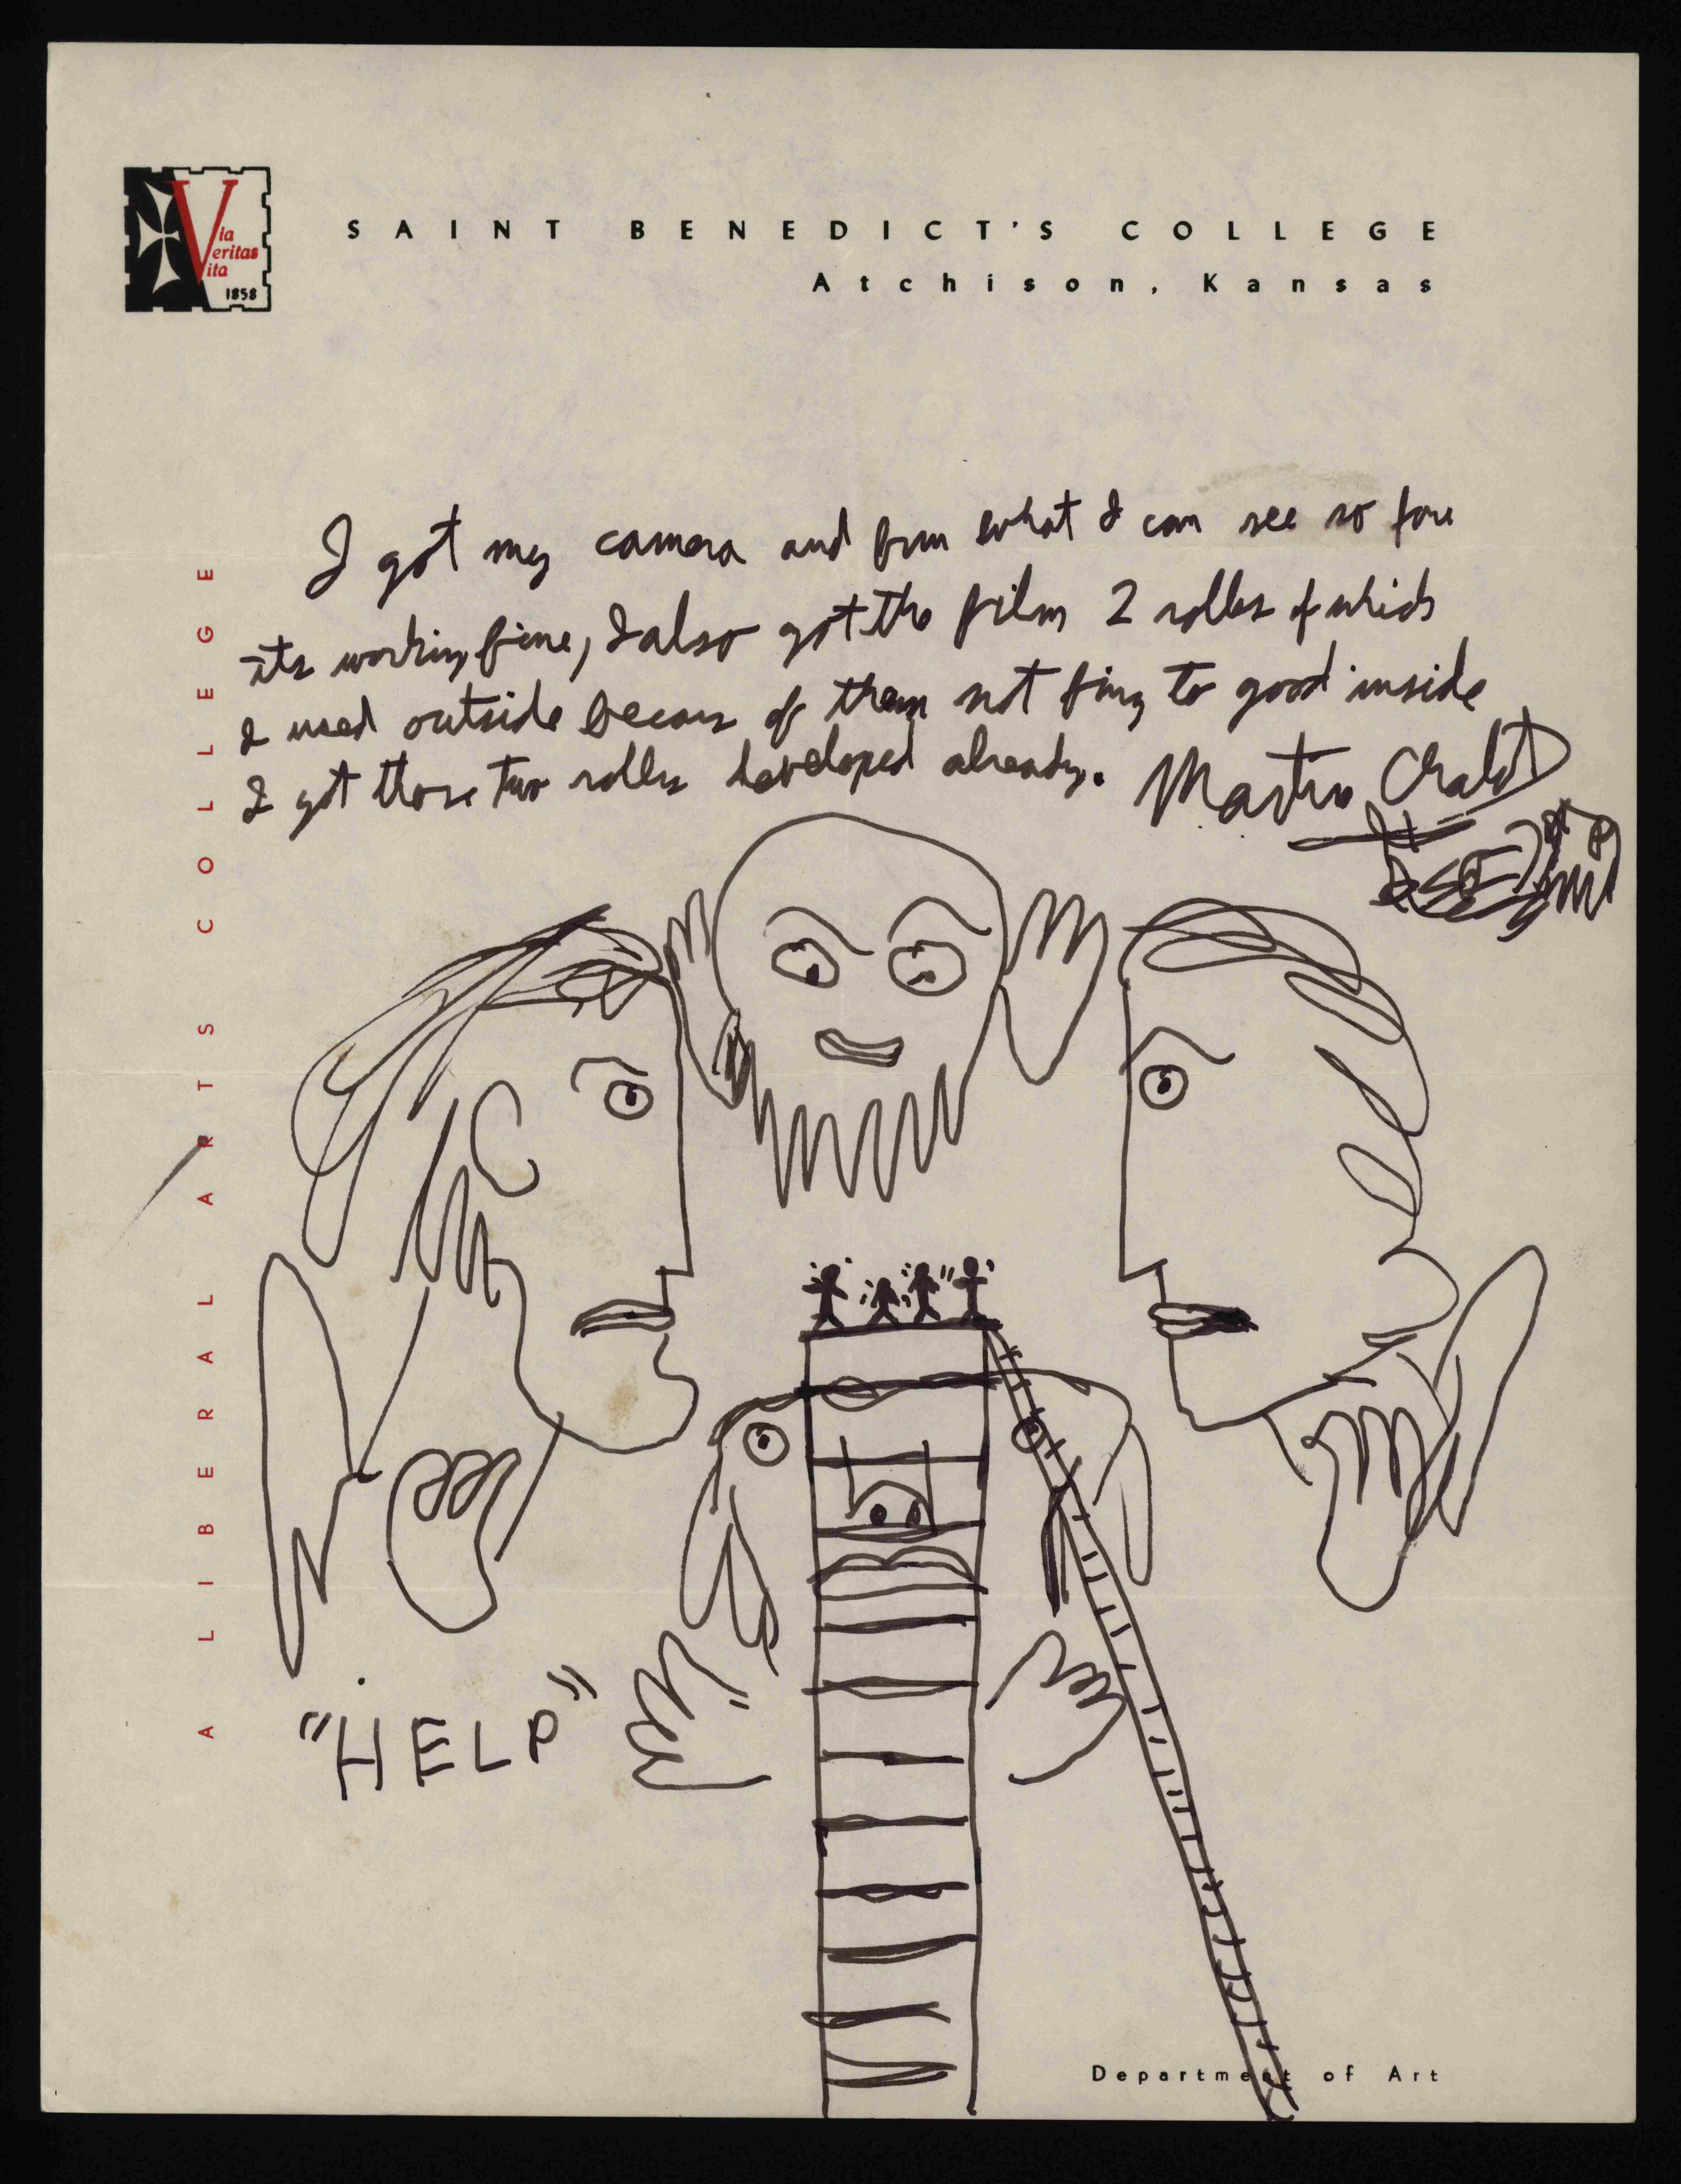 Via
Veritas
Vita
1858
SAINT BENEDICT'S COLLEGE
Atchison, Kansas
A LIBERAL ARTS COLLEGE
I got my camera and frum what I can see so fare
its working fine, I also got the film 2 rolles of which
I used outside becaus of them not fing to good inside
I got those two rolles developed already.
"HELP"
Department of Art